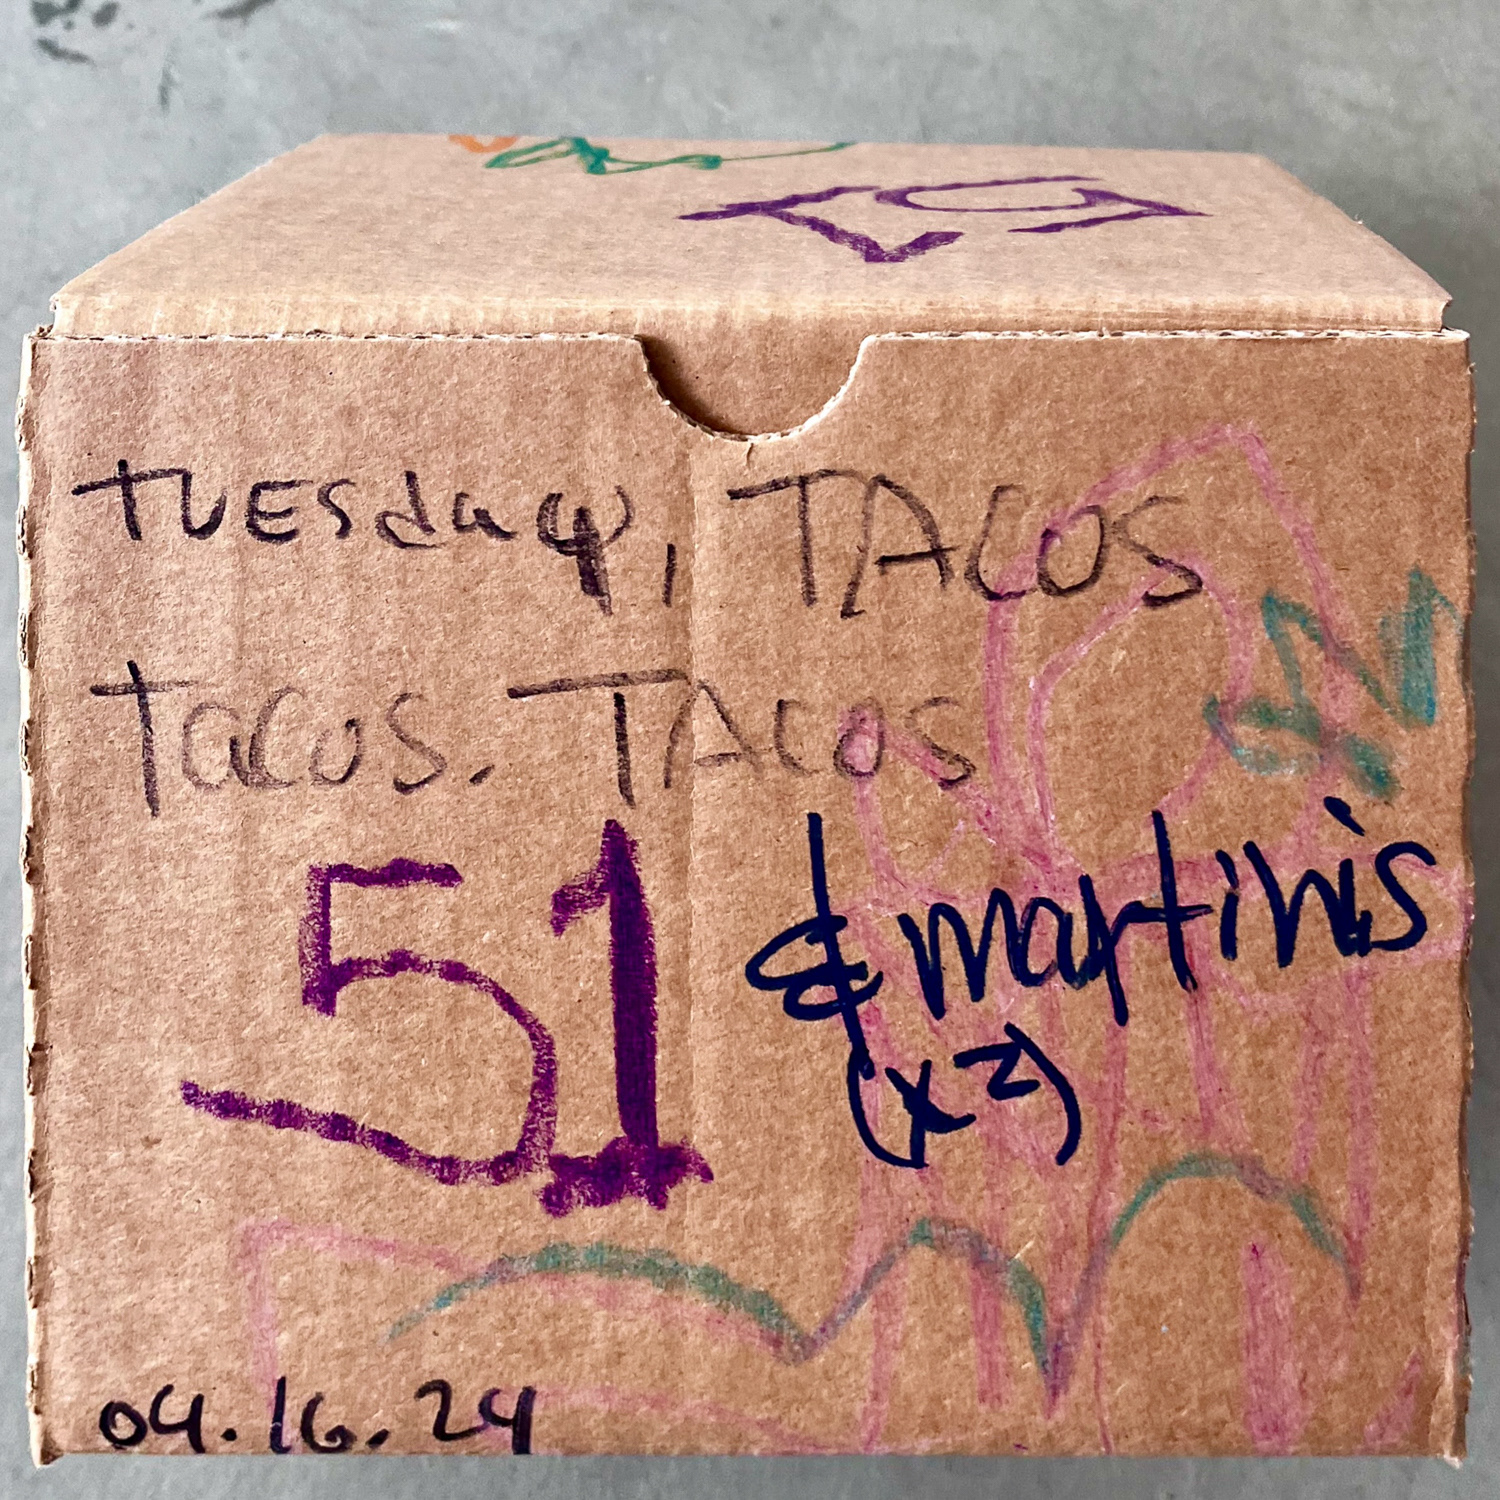 TUESday, TACOS
TacoS. TACOS
51
& martinis
(x2)
04.16.24